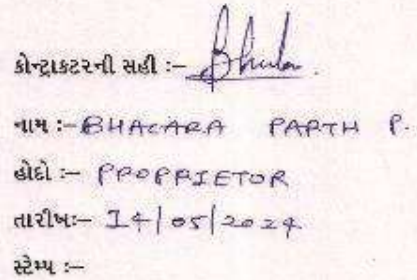 કોન્ટ્રાકટરની સહી :-
નામ :- BHALARA PARTH P.
હોદ્દો :- PROPRIETOR
તારીખ:- 14/05/2024
સ્ટેમ્પ :-